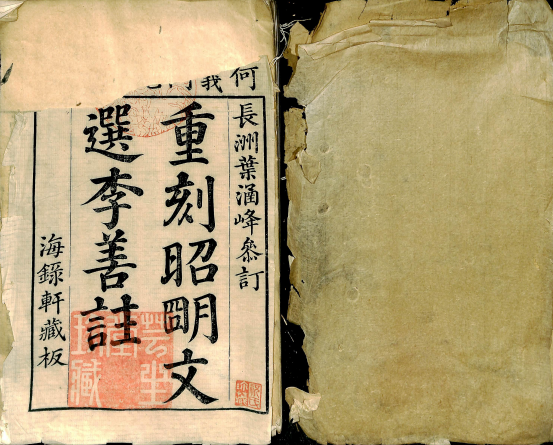 何
長洲葉涵峰叅訂
重刻昭明文
選李善註
海錄軒藏板